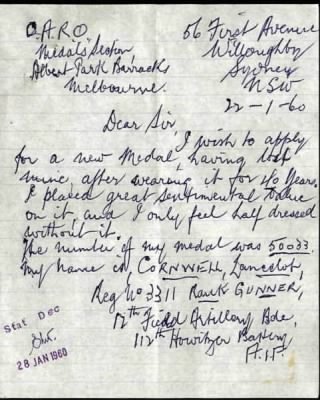 O.A.R.O.
Medals Section,
Albert Park Barracks
Melbourne.
56 First Avenue
Willoughby
Sydney
NSW
22-1-60
Dear Sir,
I wish to apply
for a new Medal, having lost
mine, after wearing it for 40 years.
I placed great sentimental value
on it, and I only feel half dressed
without it.
The number of my medal was 50033.
My name is, CORNWELL, Lancelot,
Reg No 3311 Rank GUNNER,
12th Field Artillery Bde,
112th Howitzer Battery
A.I.F.
Stat Dec
28 JAN 1960